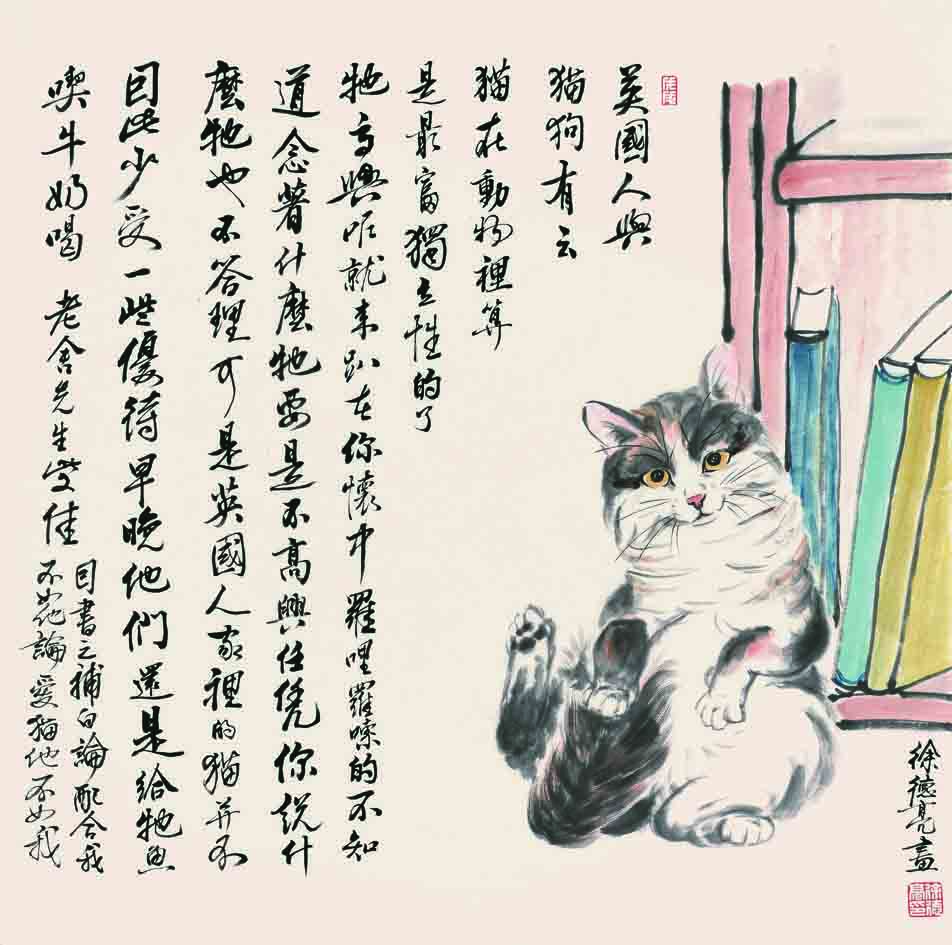 英國人與
猫狗有云
猫在動物裡算
是最富獨立性的了
牠高興呢就来趴在你懷中羅哩羅嗦的不知
道念著什麼牠要是不高興任凭你説什
麼牠也不答理可是英國人家裡的猫并不
因此少受一些優待早晚他們還是給牠魚
喫牛奶喝 老舍先生佳
因書之補白論配合我
不如他論愛猫他不如我
徐德亮畫
徐德亮印